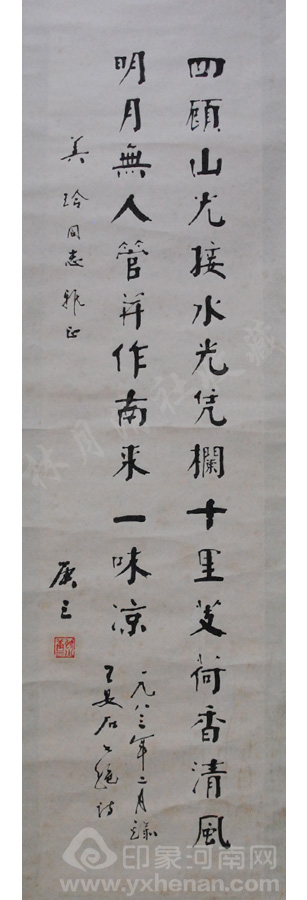 四顾山光接水光凭欄十里芰荷香清風
明月無人管并作南来一味凉
一九八三年二月录
王安石绝诗
美玲同志雅正
印象河南网
www.yxhenan.com